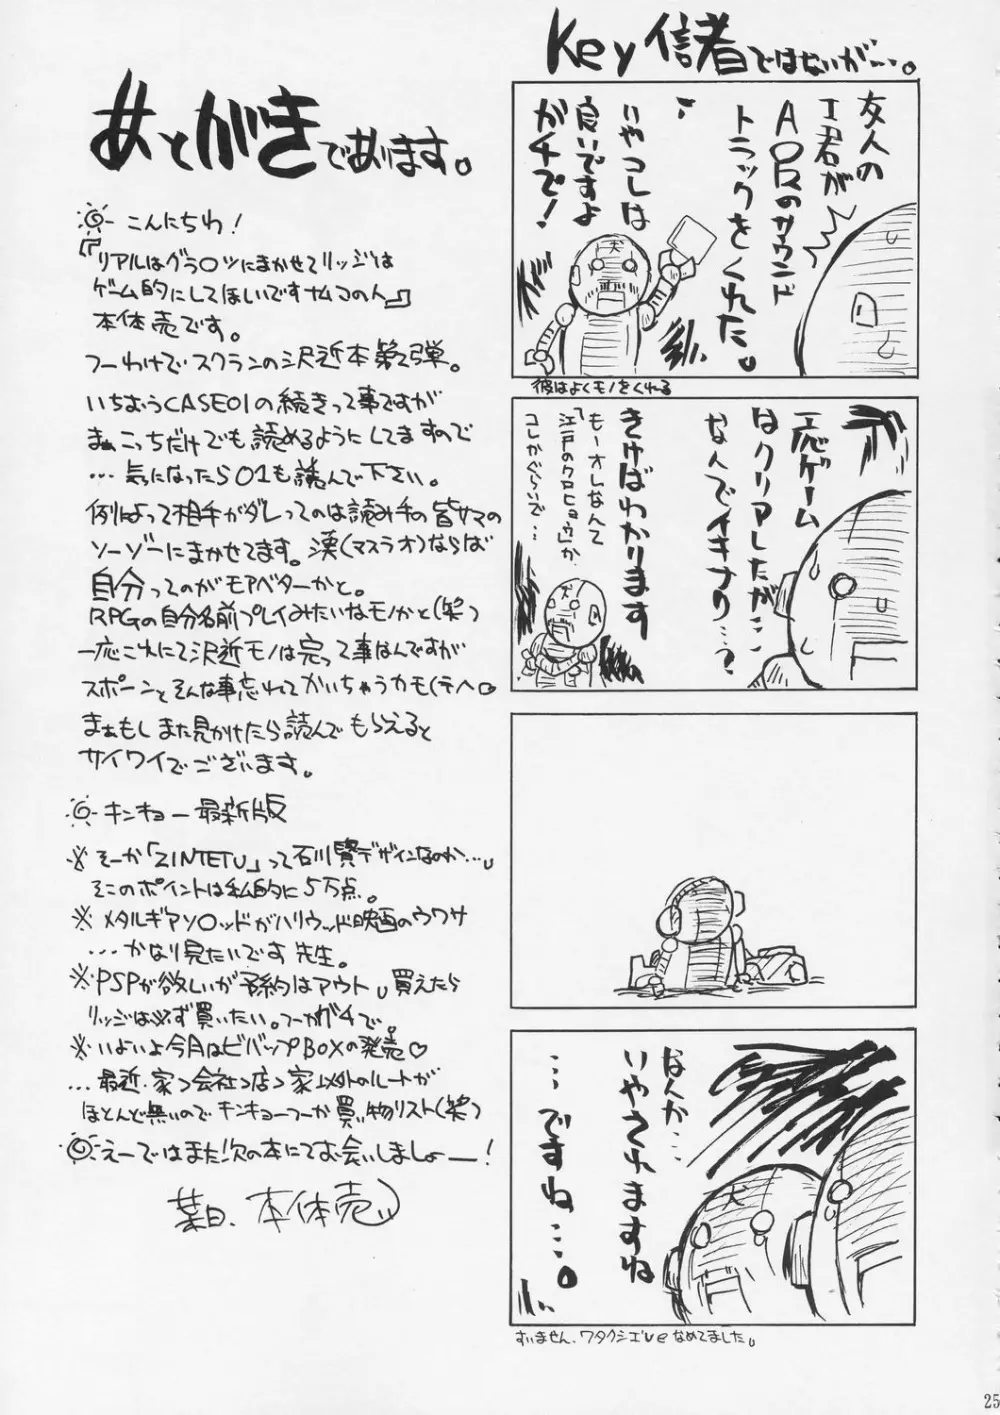 あとがきであります。
こんにちわ!
『リアルはグラ○ツにまかせてリッジは
ゲーム的にしてほしいですナムコの人』
本体売です。
つーわけでスクランの沢近本第2弾。
いちおうCASE01の続きって事ですが
まぁこっちだけでも読めるようにしてますので
…気になったら01も読んで下さい。
例によって相手がダレってのは読み手の皆サマの
ソーゾーにまかせてます。漢(マスラオ)ならば
自分ってのがモアベターかと。
RPGの自分名前プレイみたいなモノかと(笑)
一応これにて沢近モノは完って事なんですが
スポーンとそんな事忘れてかいちゃうカモ(テヘ。
まぁもしまた見かけたら読んでもらえると
サイワイでございます。
キンキョー最新版
※そーか「ZINTETU」って石川賢デザインなのか…。
そこのポイントは私的に5万点。
※メタルギアソ○ッドがハリウッド映画のウワサ
…かなり見たいです先生。
※PSPが欲しいが予約はアウト。買えたら
リッジは必ず買いたい。つーかガチで。
※いよいよ今月はビバップBOXの発売♡
…最近、家>会社>店>家以外のルートが
ほとんど無いのでキンキョーつーか買い物リスト(笑)
えーではまた次の本にてお会いしましょー!
葉月、本体売
Key信者ではないが…。
友人の
I君が
AIRのサウンド
トラックをくれた。
いやコレは
良いですよ
ガチで!
彼はよくモノをくれる
一応ゲーム
はクリアしたが…
なんでイキナリ…?
きけばわかります
もーオレなんて
「江戸のクロヒョウ」か、
コレかぐらいで…
なんか…
いやされますね
……ですね…。
すいません、ワタクシエVeなめてました。
25